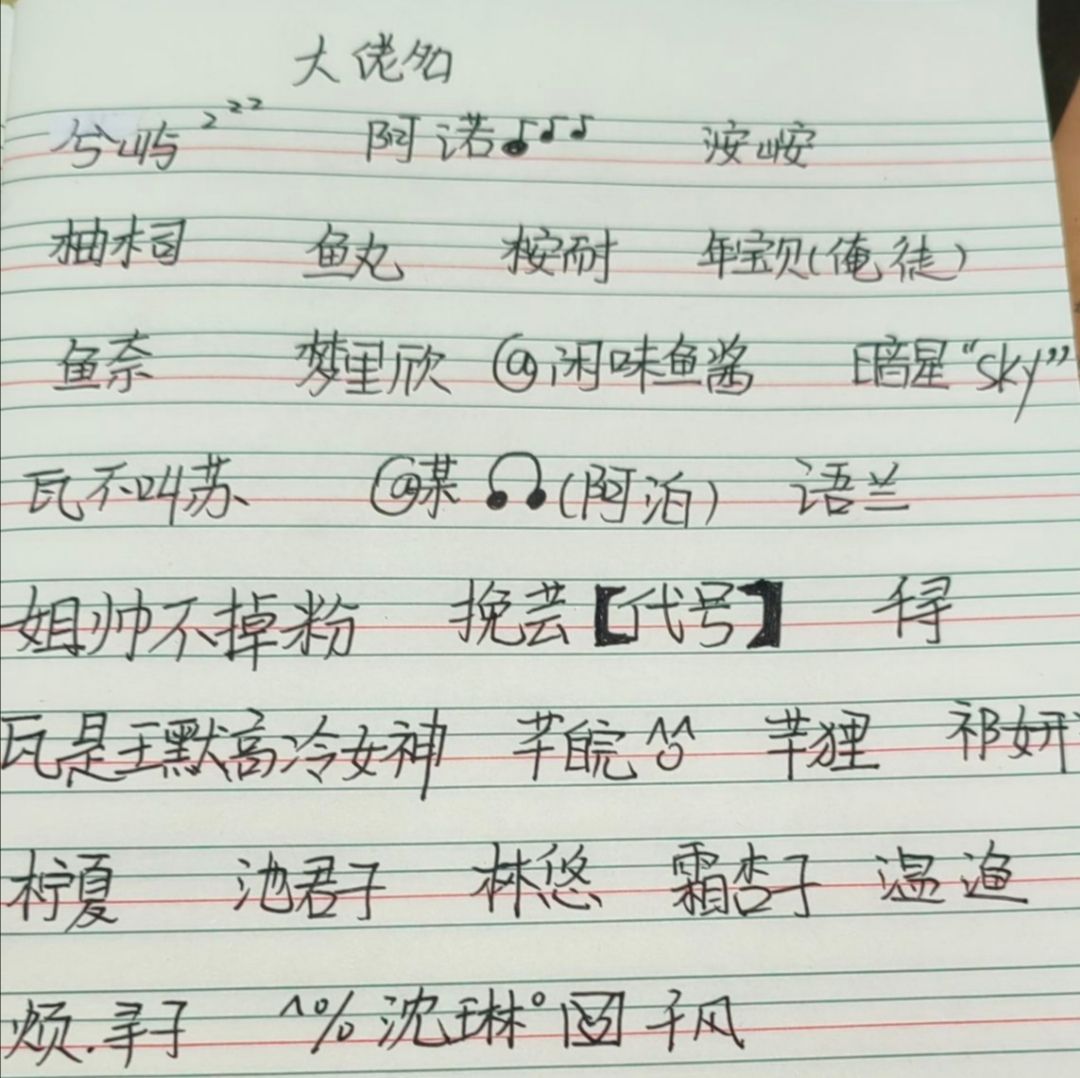 大佬名
兮屿zzz 阿诺♪♪♪ 洝峖
柚桐 鱼丸 桉耐 年宝贝(俺徒)
鱼奈 梦里欣 @闲味鱼酱 暗星“sky”
瓦不叫苏、 @某 (阿泊) 语兰
姐帅不掉粉 挽芸【代号】 得
瓦是王默高冷女神 芊皖^^ 芊狸 祁妍
柠夏 池君子 林悠 霜杏子 温渔
烦.寻于 ^%沈琳° 千风